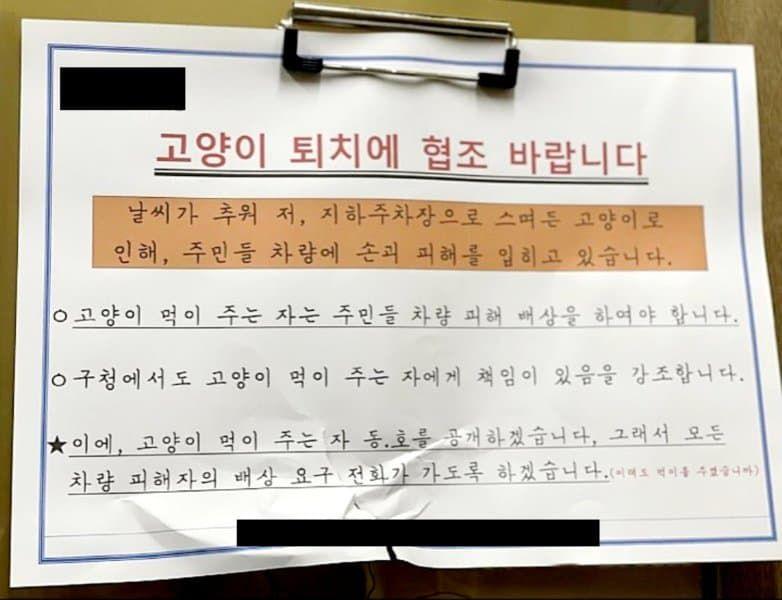 고양이 퇴치에 협조 바랍니다
날씨가 추워 저, 지하주차장으로 스며든 고양이로
인해, 주민들 차량에 손괴 피해를 입히고 있습니다.
○ 고양이 먹이 주는 자는 주민들 차량 피해 배상을 하여야 합니다.
○ 구청에서도 고양이 먹이 주는 자에게 책임이 있음을 강조합니다.
★ 이에, 고양이 먹이 주는 자 동.호를 공개하겠습니다, 그래서 모든
차량 피해자의 배상 요구 전화가 가도록 하겠습니다.(이래도 먹이를 주겠습니까)